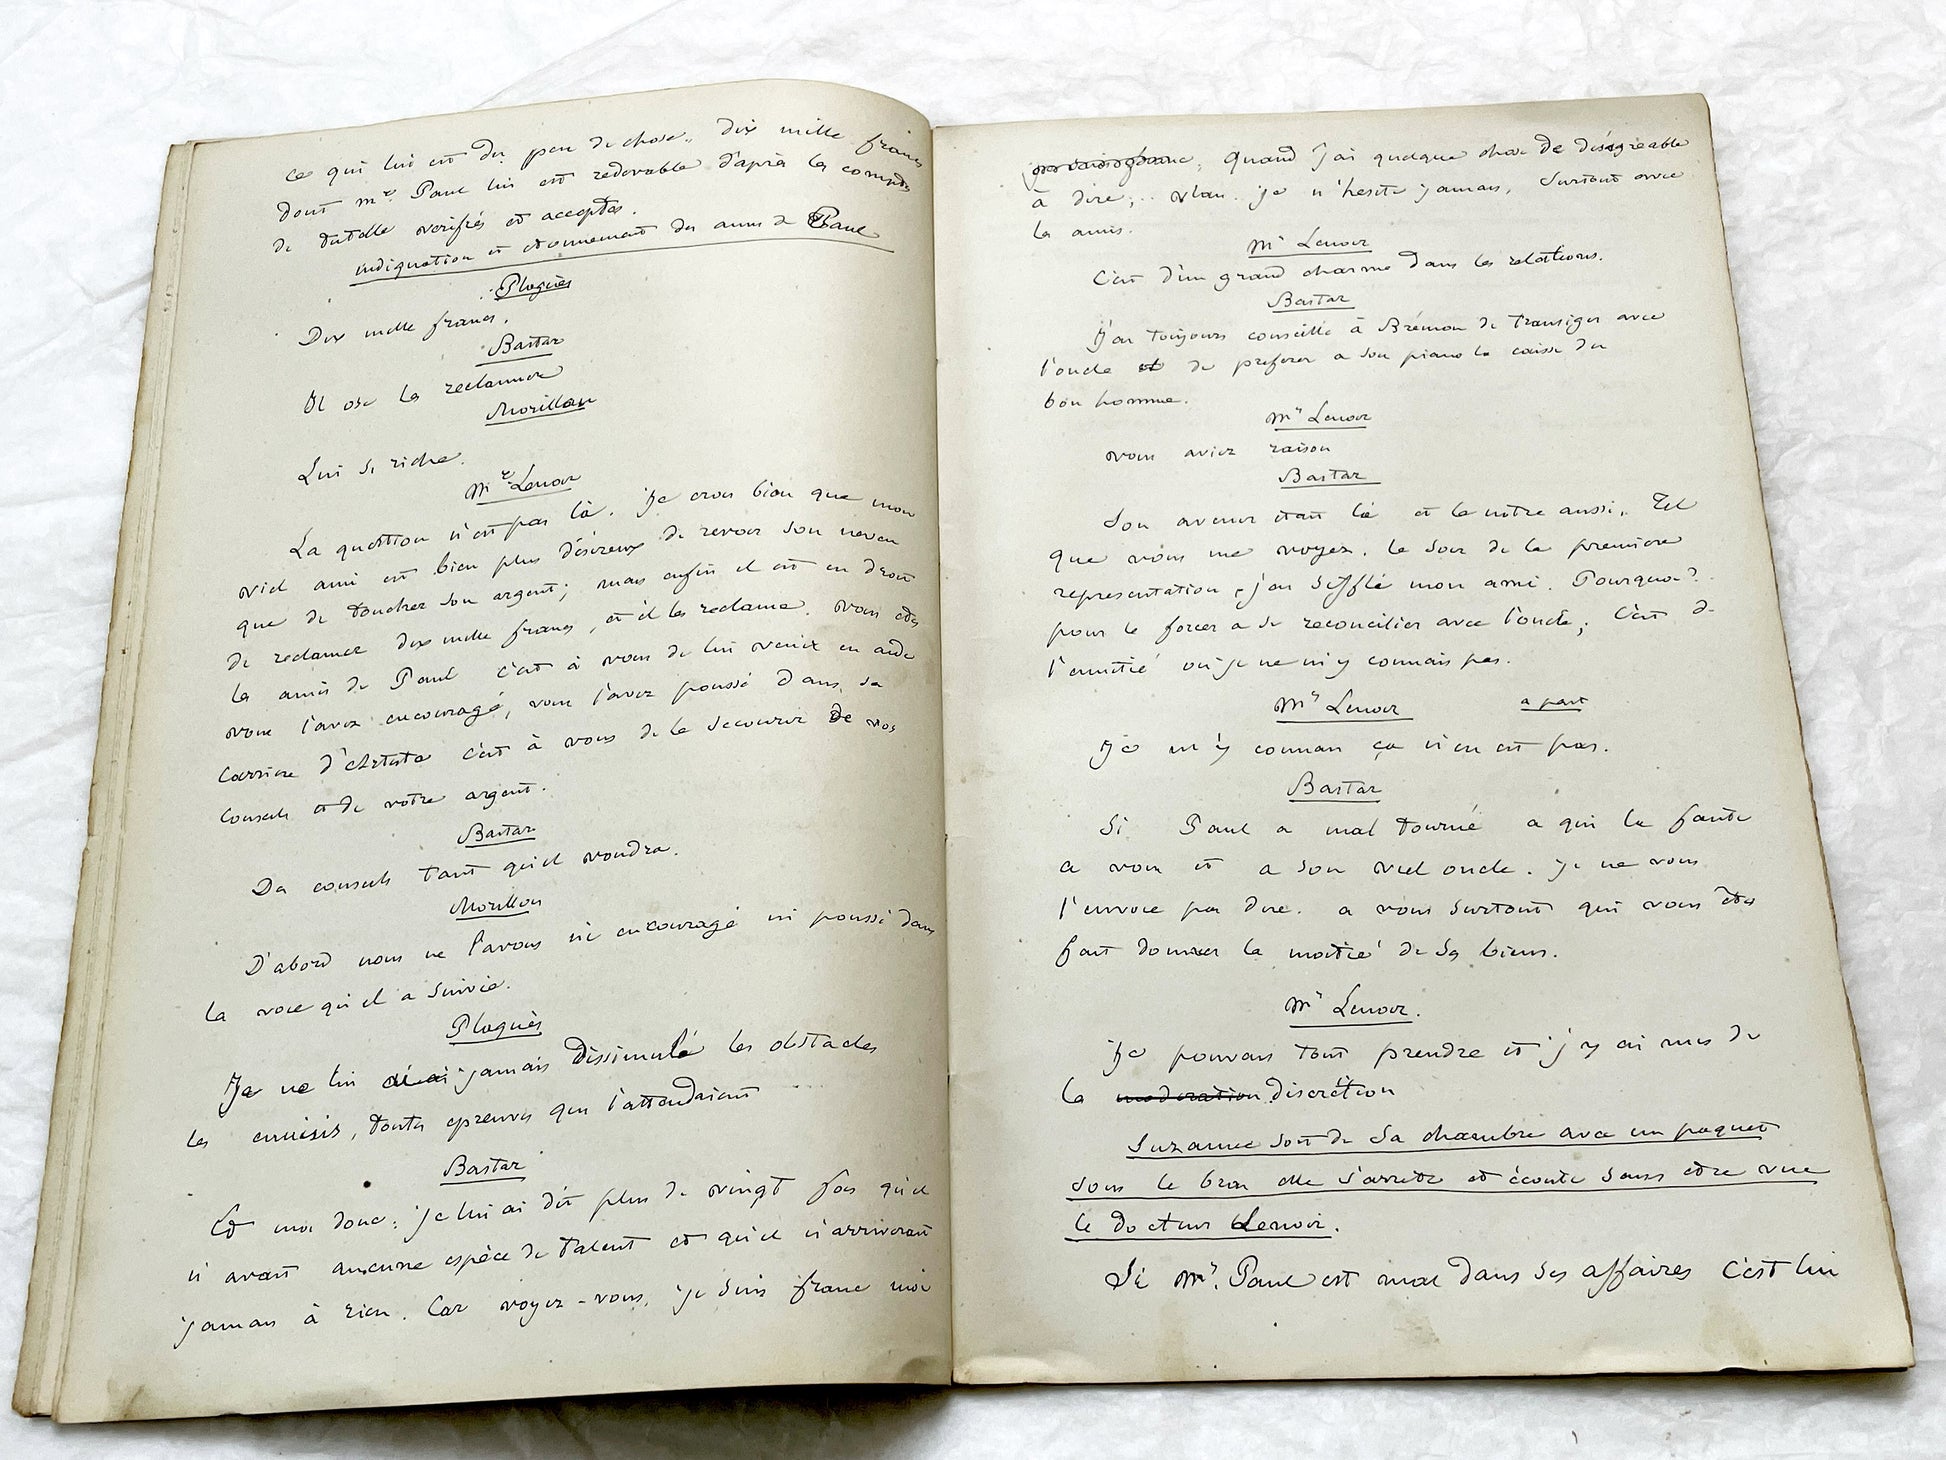 ce qui lui est du peu de chose, dix mille francs
dont mr Paul lui est redevable d'après les comptes
de tutelle verifiés et acceptés.
indignation et etonnement des amis de Paul
Ploguès
Dix mille francs.
Bastar
Il ose les reclamer
Morillon
Lui si riche.
Mr Lenoir
La question n'est pas là. Je crois bien que mon
vieil ami est bien plus désireux de revoir son neveu
que de toucher son argent; mais enfin il est en droit
de reclamer dix mille francs, et il les reclame. Vous etes
les amis de Paul c'est à vous de lui venir en aide
vous l'avez encouragé, vous l'avez poussé dans sa
carrière d'Artiste c'est à vous de le secourir de vos
conseils et de votre argent.
Bastar
Des conseils tant qu'il voudra.
Morillon
D'abord nous ne l'avons ni encouragé ni poussé dans
la voie qu'il a suivie.
Ploguès
Je ne lui ai jamais dissimulé les obstacles
les ennuis, toutes epreuves qui l'attendaient
Bastar
Et moi donc; je lui ai dit plus de vingt fois qu'il
n'avait aucune espèce de talent et qu'il n'arriverait
jamais à rien. Car voyez-vous, je suis franc moi
Quand j'ai quelque chose de désagreable
à dire,.. vlan. je n'hesite jamais, surtout avec
les amis.
Mr Lenoir
C'est d'un grand charme dans les relations.
Bastar
J'ai toujours conseillé à Brémon de transiger avec
l'oncle et de preferer a son piano la caisse du
bon homme.
Mr Lenoir
vous aviez raison
Bastar
Son avenir était là et le nôtre aussi. Tel
que vous me voyez. le soir de la premiere
representation, j'ai sifflé mon ami. Pourquoi?
pour le forcer a se reconcilier avec l'oncle; C'est de
l'amitié ou je ne m'y connais pas.
Mr Lenoir a part
Je m'y connais ça n'en est pas.
Bastar
Si Paul a mal tourné a qui la faute
a vous et a son vieil oncle. je ne vous
l'envoie pas dire. a vous surtout qui vous êtes
fait donner la moitié de ses biens.
Mr Lenoir.
Je pouvais tout prendre et j'y ai mis de
la moderation discrétion
Suzanne sort de sa chambre avec un paquet
sous le bras elle s'arrete et écoute sans etre vue
le docteur Lenoir.
Si Mr. Paul est mal dans ses affaires c'est lui